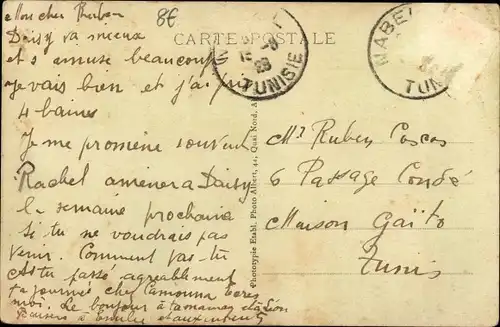 Mon cher Ruben
8E
Daisy va mieux
et s'amuse beaucoup
Je vais bien et j'ai pris
4 bains
Je me promène souvent
Rachel amènera Daisy
la semaine prochaine
Si tu ne voudrais pas
venir. Comment vas-tu
As tu passé agréablement
ta journée chez Camouna Ecris
moi. Le bonjour à ta maman et à Léon
Baisers à Emilie et aux enfants
CARTE POSTALE
TUNISIE
NABEUL
TUN
Phototypie Etabl. Photo Albert, 44, Quai Nord, A
Mr Ruben Coscas
6 Passage Condé
Maison Gaïto
Tunis